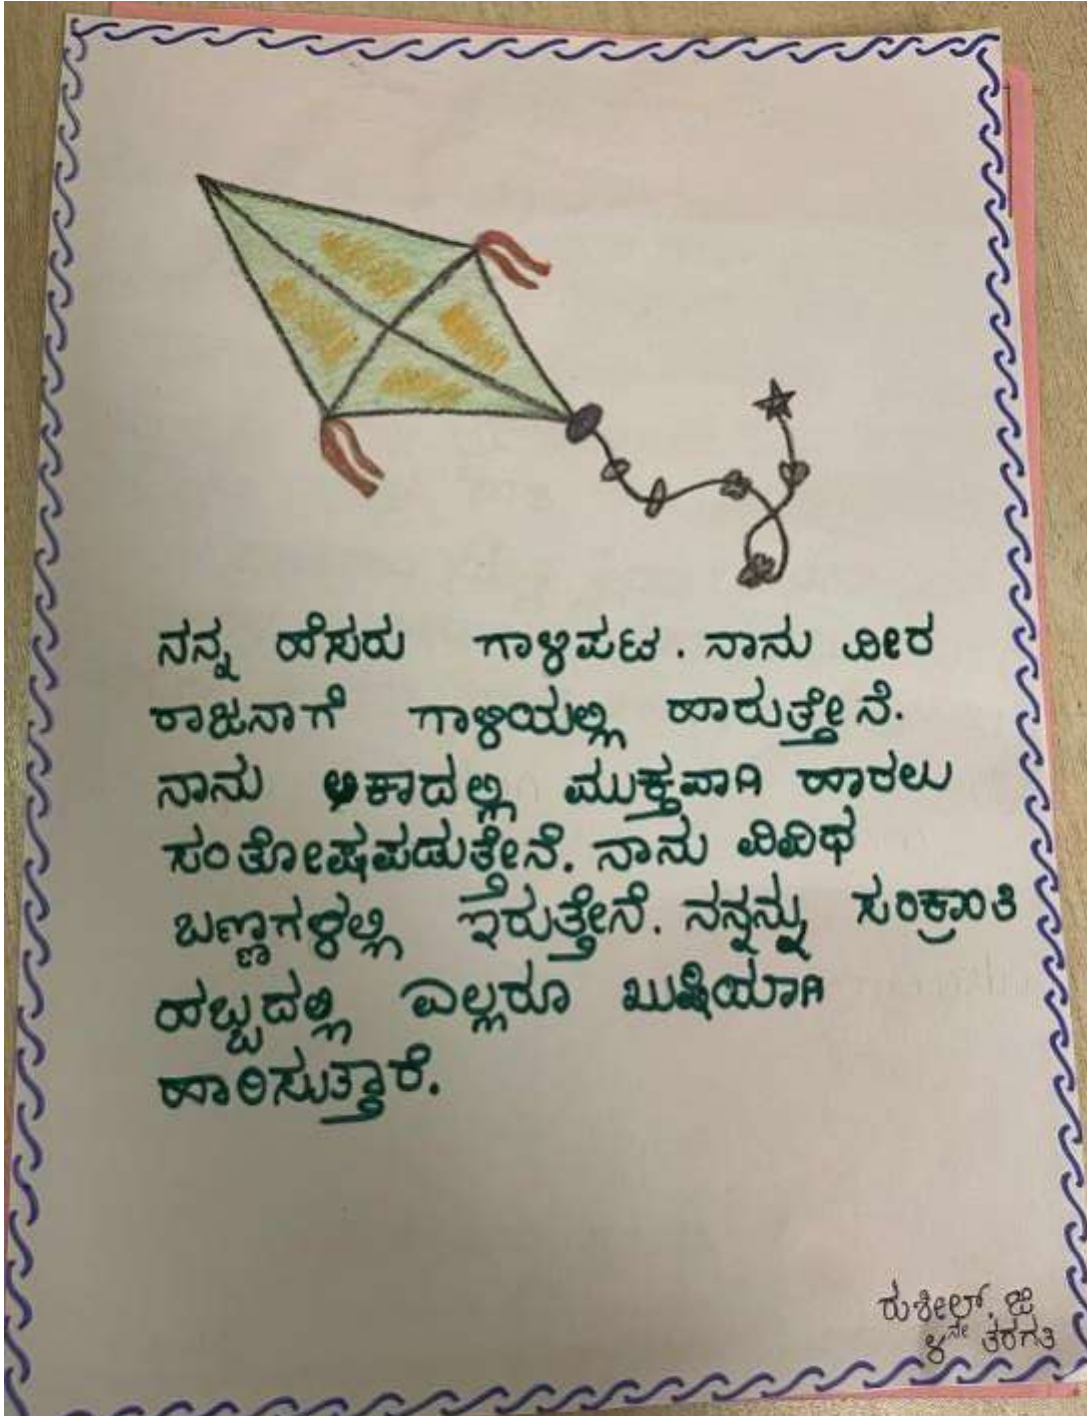 ನನ್ನ ಹೆಸರು ಗಾಳಿಪಟ. ನಾನು ವೀರ
ರಾಜನಾಗೆ ಗಾಳಿಯಲ್ಲಿ ಹಾರುತ್ತೇನೆ.
ನಾನು ಆಕಾದಲ್ಲಿ ಮುಕ್ತವಾಗಿ ಹಾರಲು
ಸಂತೋಷಪಡುತ್ತೇನೆ. ನಾನು ವಿವಿಧ
ಬಣ್ಣಗಳಲ್ಲಿ ಇರುತ್ತೇನೆ. ನನ್ನನ್ನು ಸಂಕ್ರಾಂತಿ
ಹಬ್ಬದಲ್ಲಿ ಎಲ್ಲರೂ ಖುಷಿಯಾಗಿ
ಹಾರಿಸುತ್ತಾರೆ.
ರುಶೀಲ್. ಜಿ
೪ನೇ ತರಗತಿ